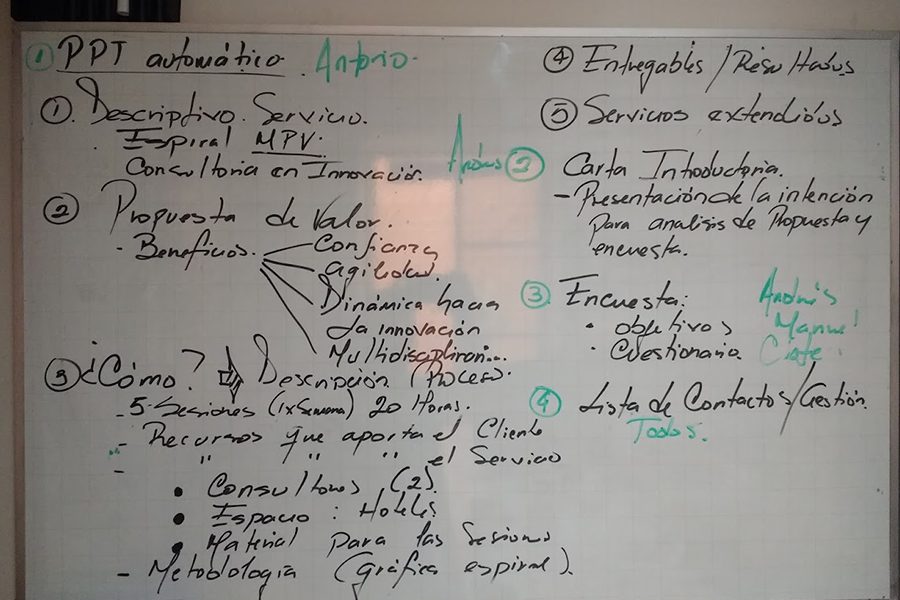 ① PPT automático. Antonio.
① Descriptivo. Servicio.
. Espiral MPV.
Consultoria en Innovación.
② Propuesta de Valor.
- Beneficios.
Confianza
agilidad.
Dinámica hacia
la innovación
Multidisciplinari...
③ ¿Cómo? Descripción (Proceso.
- 5 Sesiones (1xSemana) 20 Horas.
- Recursos que aporta el Cliente
- " " " el Servicio
• Consultores (2).
• Espacio : Hoteles
• Material para las Sesiones
- Metodologia (gráfica espiral).
④ Entregables / Resultados
⑤ Servicios extendidos
Andrés ② Carta Introductoria.
- Presentación de la intención
para analisis de Propuesta y
encuesta.
③ Encuesta: Andrés
• objetivos Manuel
• Cuestionario.
④ Lista de Contactos/Gestión.
Todos.